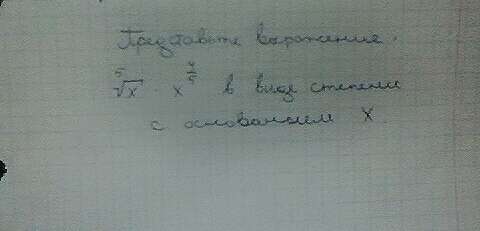 Представьте выражение.
⁵√x · x^(4/5) в виде степени
с основанием x